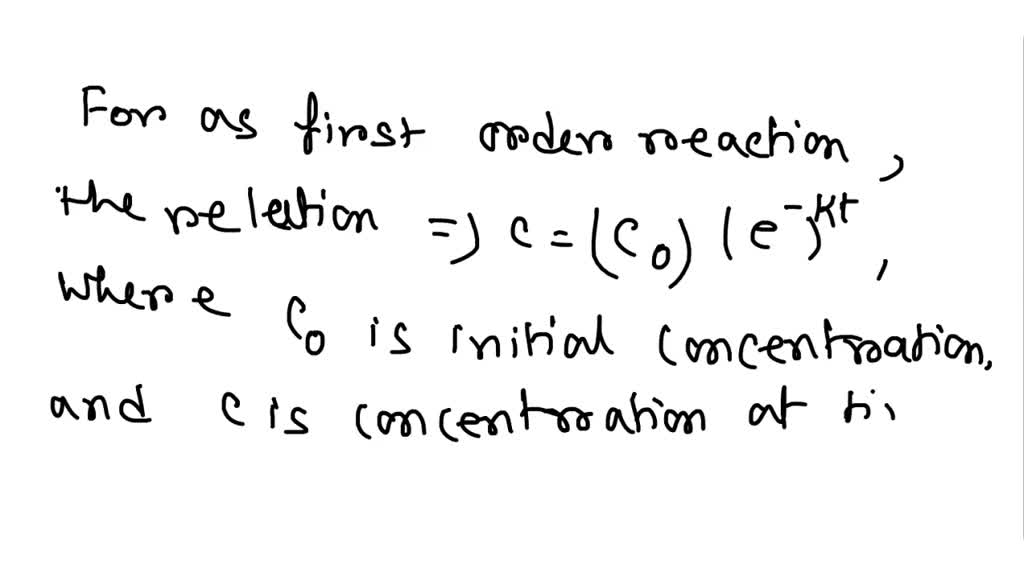 For as first order reaction,
the relation => C = (C₀) (e⁻)ᴷᵗ,
where C₀ is initial concentration,
and C is concentration at ti